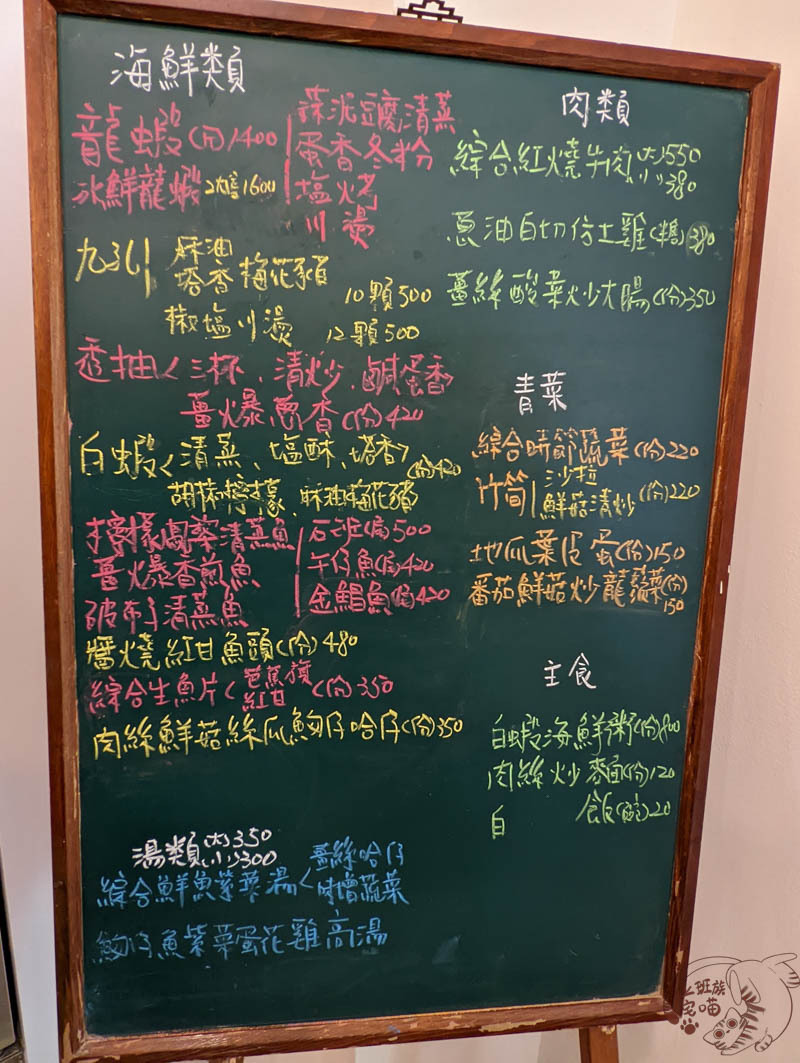 海鮮類
龍蝦(份)1400
冰鮮龍蝦 1600
蒜泥豆腐清蒸
蛋香冬粉
塩烤
川燙
九孔
麻油
塔香 梅花豬
10顆500
椒塩川燙 12顆500
透抽<三杯、清炒、鹹蛋香
薑爆蔥香(份)420
白蝦<清蒸、塩酥、塔香>(份)420
胡椒檸檬、麻油梅花豬
檸檬周蔾清蒸魚
薑爆香煎魚
破布子清蒸魚
石班(尾)500
午仔魚(尾)420
金鯧魚(尾)420
醬燒紅甘魚頭(份)480
綜合生魚片<芭蕉旗
紅甘<(份)350
肉絲鮮菇絲瓜魩仔哈仔(份)350
湯類(大)350
(小)300
綜合鮮魚紫菜湯<薑絲哈仔
味增蔬菜
魩仔魚紫菜蛋花雞高湯
肉類
綜合紅燒牛肉(大)550
(小)380
蔥油白切仿土雞 380
薑絲酸菜炒大腸(份)350
青菜
綜合時節蔬菜(份)220
竹筍
沙拉
鮮菇清炒
(份)220
地瓜葉皮蛋(份)150
番茄鮮菇炒龍鬚菜(份)
150
主食
白蝦海鮮粥(份)800
肉絲炒麵(份)120
白 飯(碗)20
上班族
宅喵